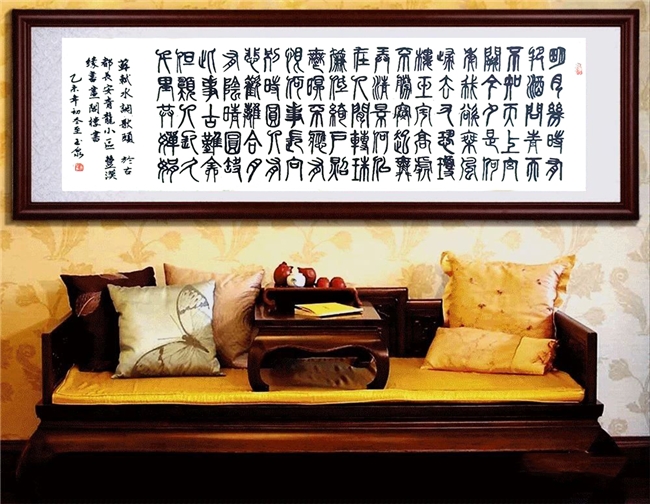 明月幾時有
把酒問青天
不知天上宮
闕今夕是何
年我欲乘風
歸去又恐瓊
樓玉宇高處
不勝寒起舞
弄清影何似
在人間轉珠
簾低綺戶照
無眠不應有
恨何事長向
別時圓人有
悲歡離合月
有陰晴圓缺
此事古難全
但願人長久
千里共嬋娟
蘇軾水調歌頭 於古
都長安青龍小區 漢
緣書畫閣樓書
乙未年初冬至